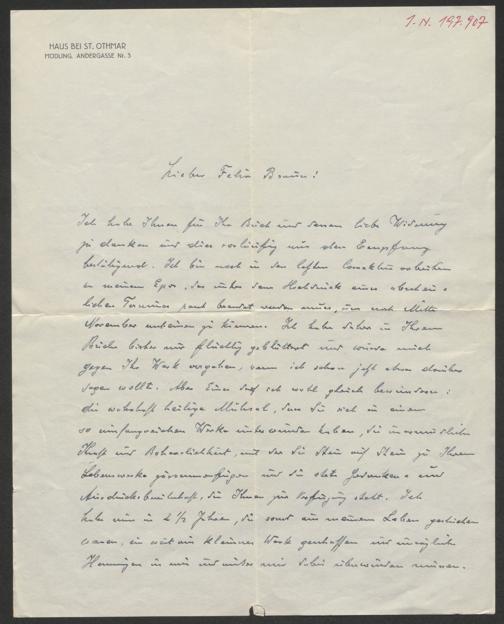 I.N. 197.907
HAUS BEI ST. OTHMAR
MÖDLING, ANDERGASSE Nr. 3
Lieber Felix Braun!
Ich habe Ihnen für Ihr Buch und dessen liebe Widmung
zu danken und dies vorläufig nur den Empfang
bestätigend. Ich bin noch in den letzten
an meinem Epos, das unter dem Hochdruck eines
lichen Termines beendet werden muss, um noch Mitte
November zu können. Ich habe daher in Ihrem
Buche bisher nur flüchtig geblättert und würde mich
gegen Ihr Werk vergehen, wenn ich schon jetzt etwas darüber
sagen wollte. Aber Eines darf ich wohl gleich bewundern:
die wahrhaft heilige Mühsal, der Sie sich in einem
so umfangreichen Werke unterwunden haben, die unermüdliche
Kraft und Beharrlichkeit, mit der Sie Stein auf Stein zu Ihrem
Lebenswerke zusammenfügen und die stete Gedanken- und
Ausdrucksbereitschaft, die Ihnen zur Verfügung steht. Ich
habe nun in 2 1/2 Jahren, die sonst aus meinem Leben gestrichen
waren, ein weitaus kleineres Werk geschaffen und unzählige
Hemmungen in mir und unter mir dabei überwinden müssen.